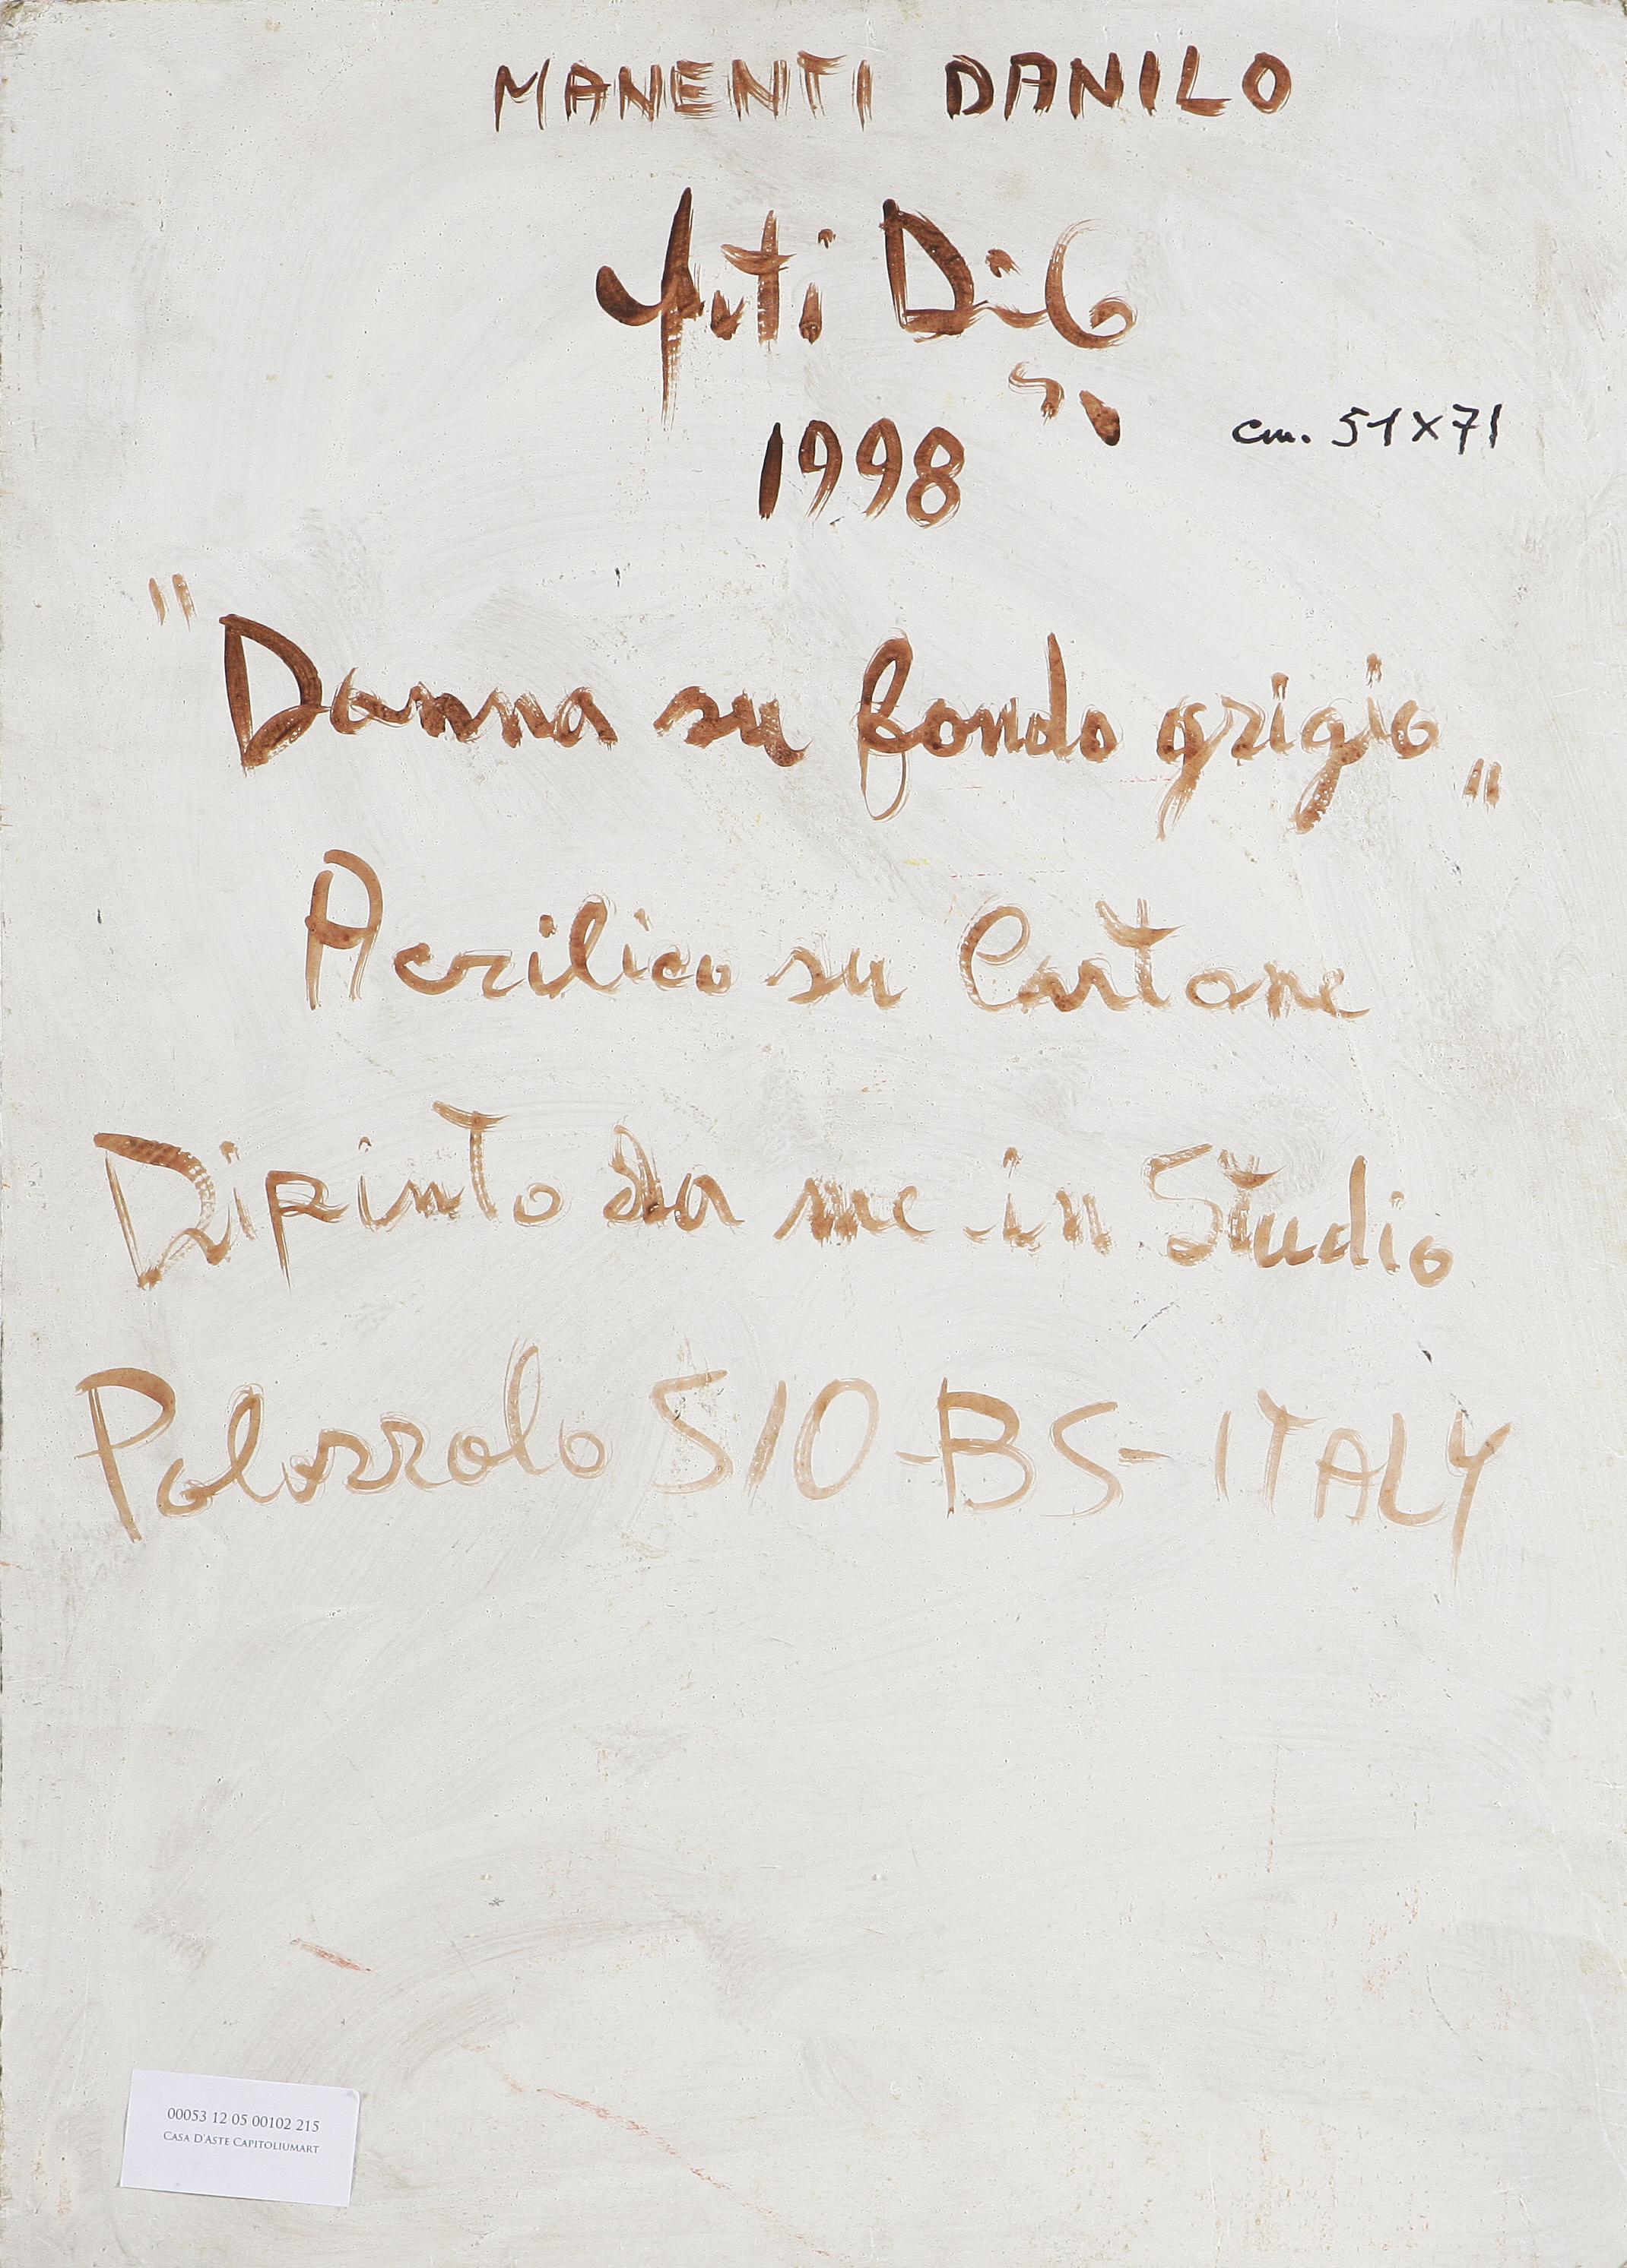 MANENTI DANILO
1998
cm. 51x71
"Donna su fondo grigio"
Acrilico su Cartone
Dipinto da me in Studio
Polozzolo S/O-BS-ITALY
00053 12 05 00102 215
CASA D'ASTE CAPITOLIUMART